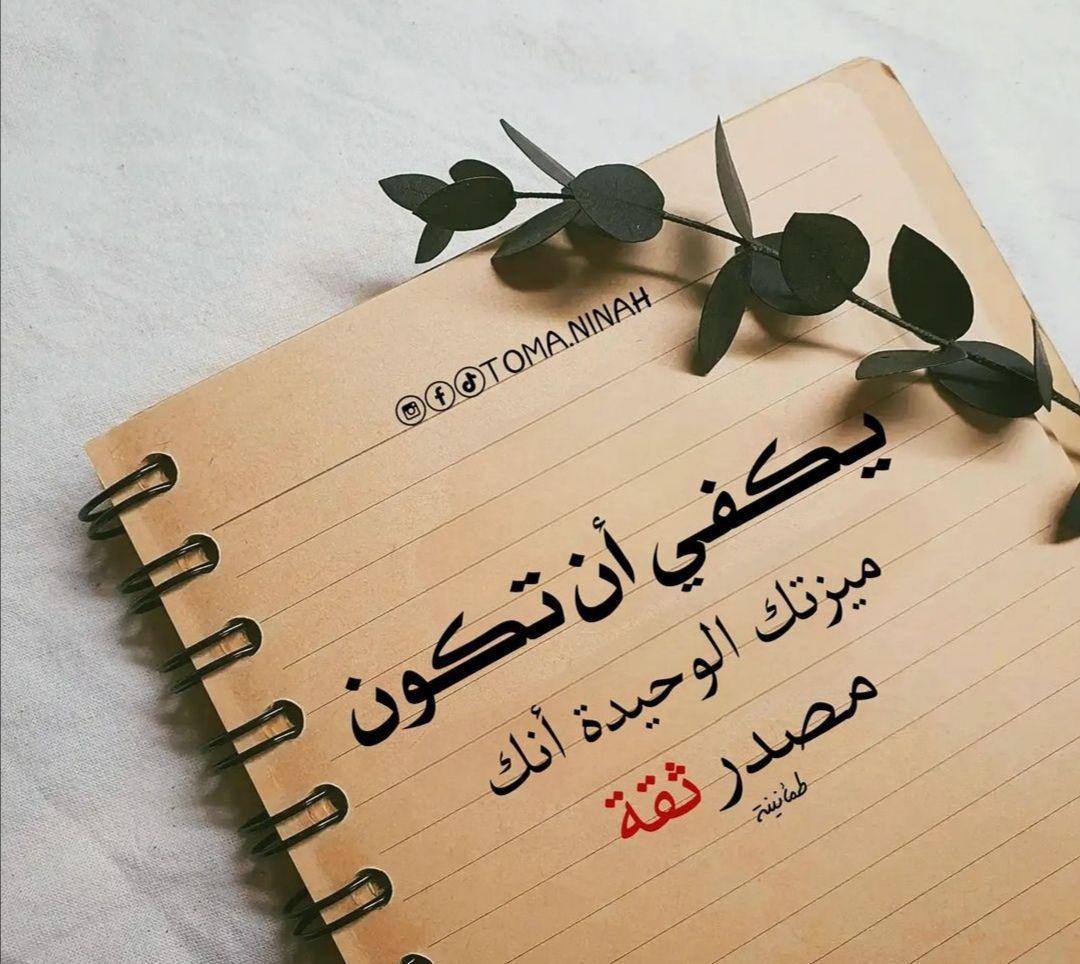 TOMA.NINAH
يكفي أن تكون
ميزتك الوحيدة أنك
مصدر ثقة
طمأنينة